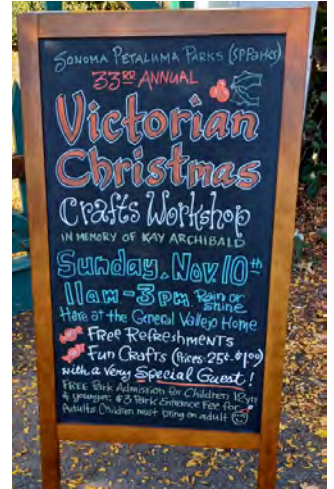 SONOMA PETALUMA PARKS (SPParks)
33RD ANNUAL
Victorian
Christmas
Crafts Workshop
IN MEMORY OF KAY ARCHIBALD
Sunday, Nov 10th
11am-3pm Rain or
shine
Here at the General Vallejo Home
Free Refreshments
Fun Crafts (Prices: 25¢-$1.00)
with a very Special Guest!
FREE Park Admission for Children 12yr
& younger. $3 Park Entrance Fee for
Adults. Children must bring an adult